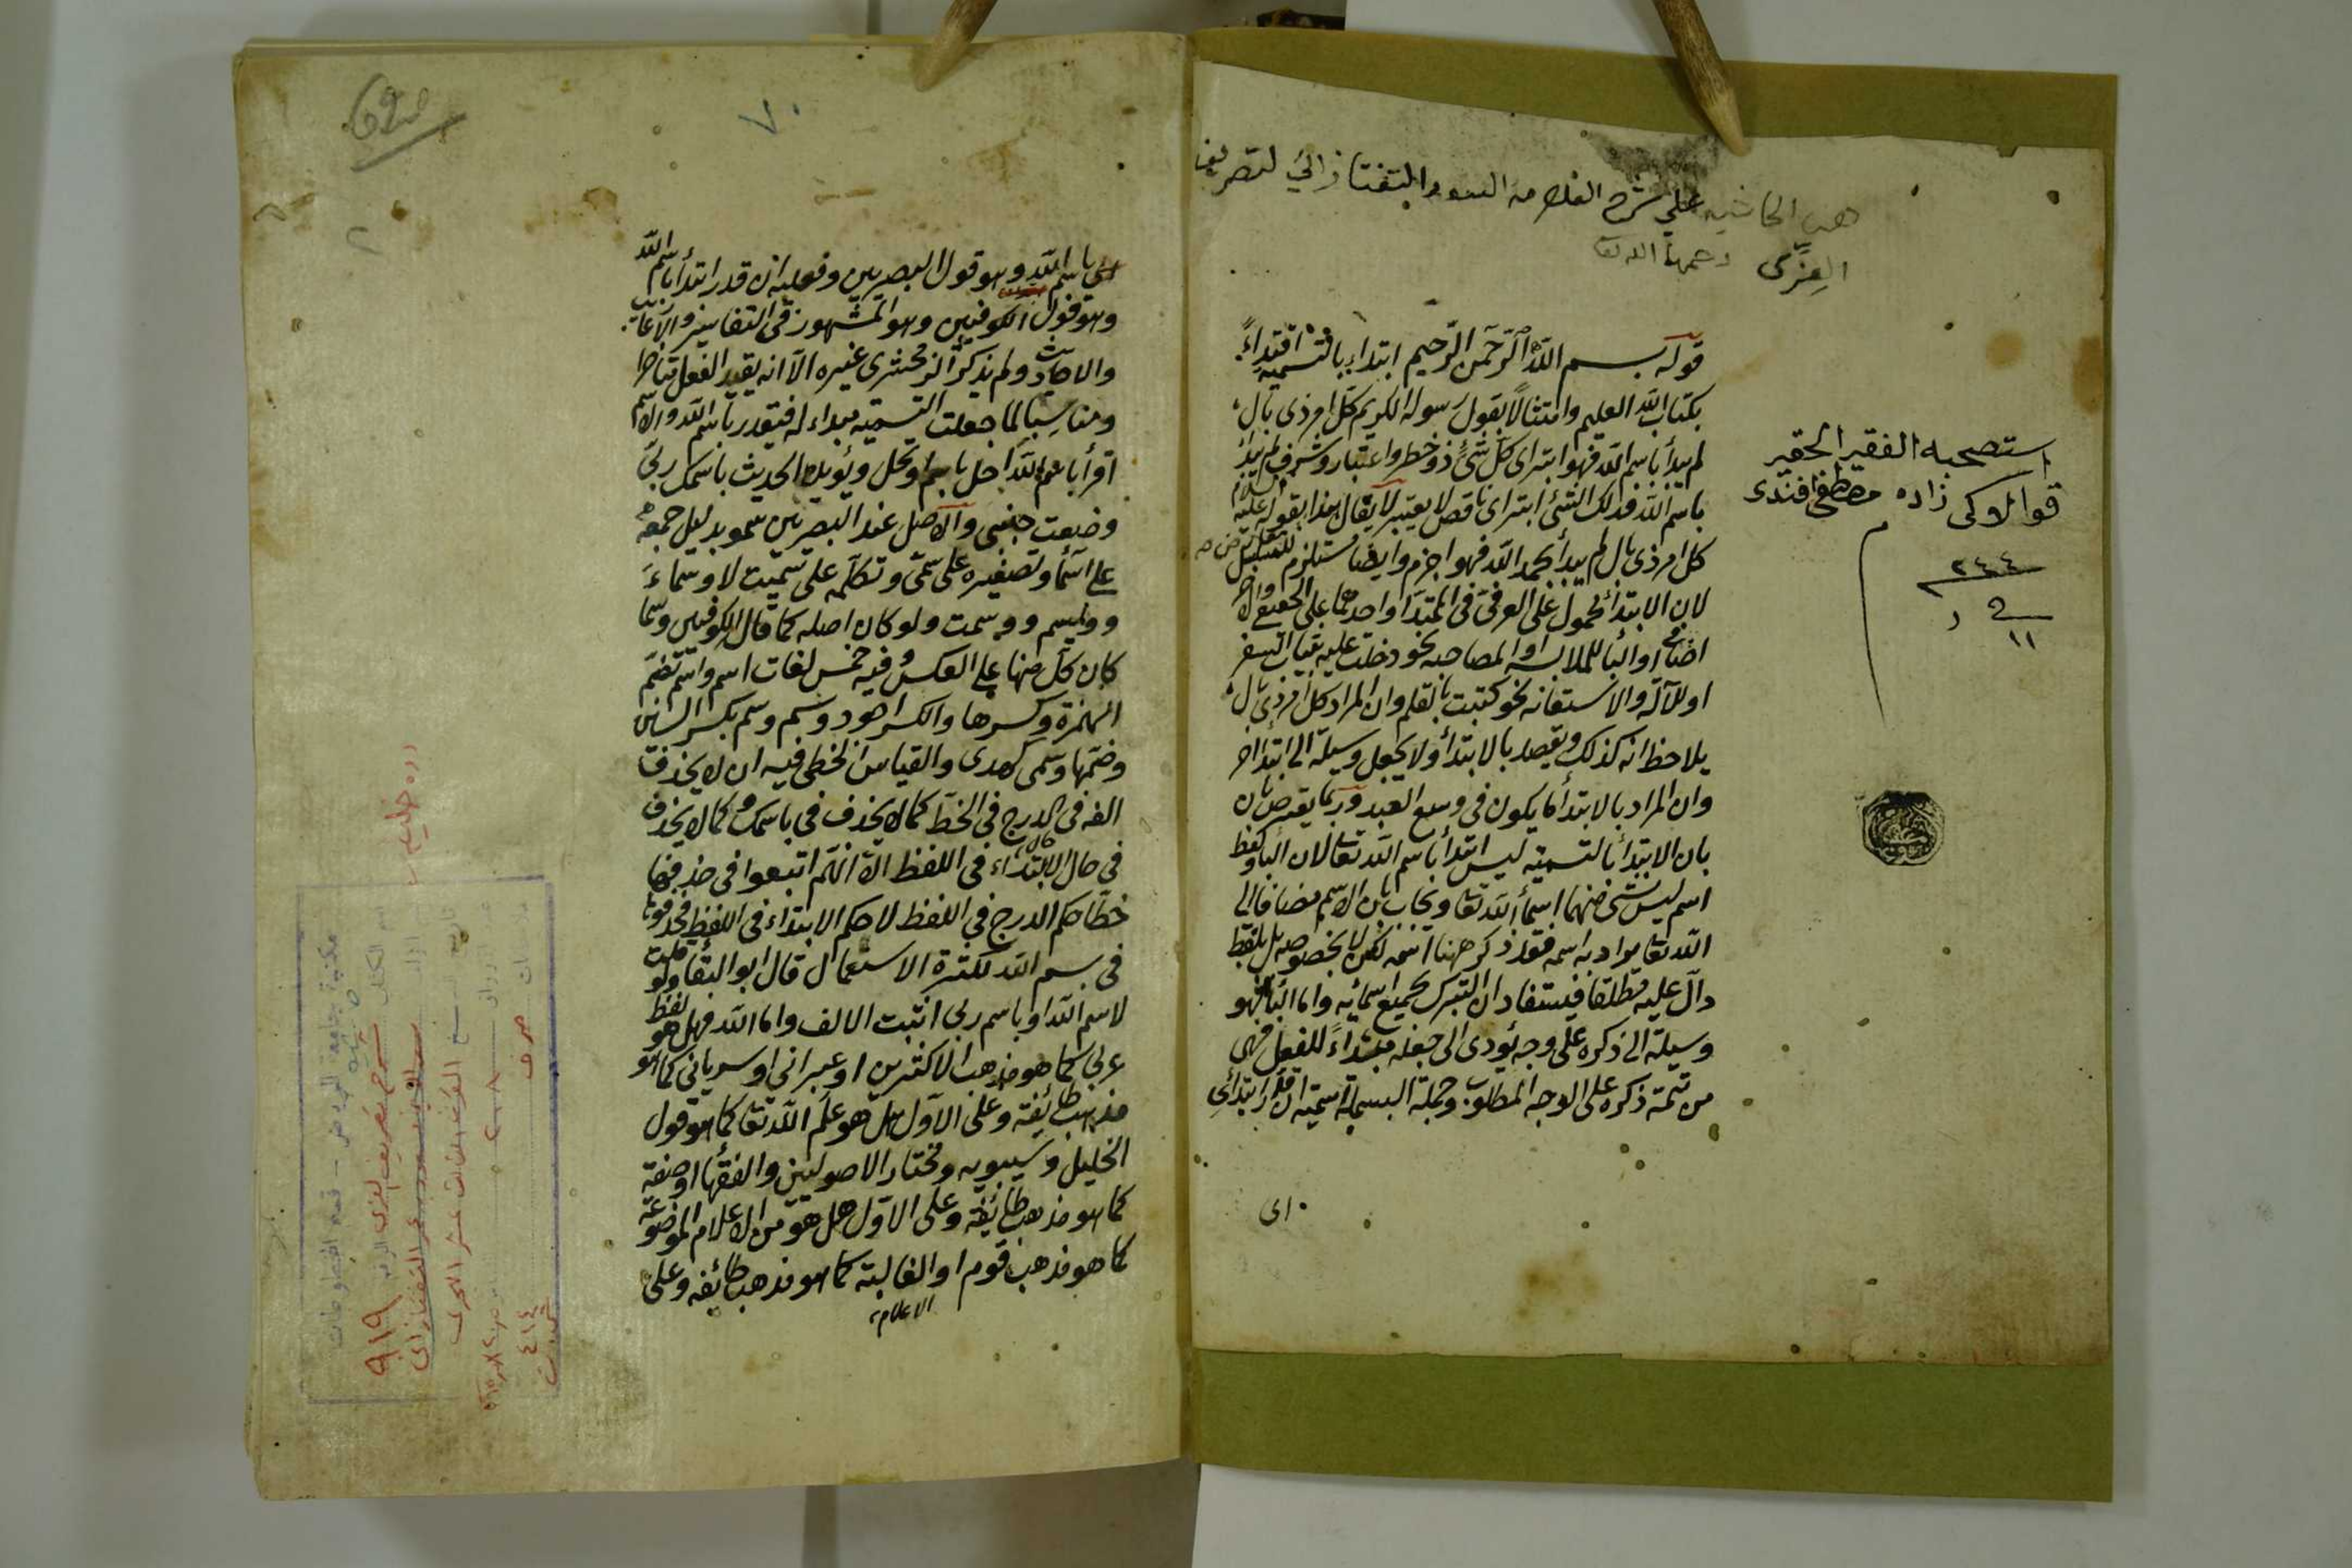 هذه الحاشيه على شرح العلامه السعد التفتازاني لتصريف
العِزّي رحمهما الله تعا
قوله بسم الله الرحمن الرحيم ابتداء بالتسمية اقتداءً
بكتاب الله العليم وامتثالاً بقول رسوله الكريم كل امر ذى بال
لم يبدأ باسم الله فهو ابتر اى كل شئ ذو خطر واعتبار وشرف لم يبدأ
باسم الله فذلك الشئ ابتر اى ناقص لا يعتبر لا يقال هذا بقوله عليه السلام
كل امر ذى بال لم يبدأ بحمد الله فهو اجزم وايضا مستلزم للتسلسل
لان الابتدأ محمول على العرفى فى المبتدأ واحدهما على الحقيقى والاخر
اضافى او البأ للملابسه او المصاحبه نحو دخلت عليه بثياب السفر
او للآلة والاستعانه نحو كتبت بالقلم وان المراد كل امر ذى بال
يلاحظ انه كذلك ويقصد بالابتدأ ولا يجعل وسيلة الى ابتدا اخر
وان المراد بالابتدأ ما يكون فى وسع العبد وربما يعترض بان
بان الابتدأ بالتسمية ليس ابتدأ باسم الله تعا لان البأ ولفظ
اسم ليس شئ منهما اسمأ الله تعا ويجاب بان الاسم مضافا الى
الله تعا يراد به اسمه فقد ذكر ههنا اسمه لكن لا بخصوصه بل بلفظ
دال عليه مطلقا فيستفاد ان التبرك بجميع اسمائه واما البأ فهو
وسيلة الى ذكره على وجه يؤدى الى جعله مبتداءً للفعل فهى
من تتمة ذكره على الوجه المطلوب وجملة البسملة اسمية ان قدر ابتدأى
اى
استصحبه الفقير الحقير
قوالاوكى زاده مصطفى افندى
٢٤٤
١١
٧٠
باسم الله وهو قول البصريين وفعليه ان قدر ابتدأ باسم الله
وهو قول الكوفيين وهو المشهور فى التفاسير والاعاريب
والاحاديث ولم يذكر الزمخشرى غيره الا انه يقدر الفعل متأخرا
ومناسبا لما جعلت التسمية مبداء له فيقدر باسم الله
اقرأ باسم الله احل باسم ارتحل ويؤيده الحديث باسمك ربى
وضعت جنبى والاصل عند البصريين سمو بدليل جمعه
على اسمأ وتصغيره على سمى وتكلمه على سميت لا وسماء
ووسيم ووسمت ولو كان اصله كما قال الكوفيين وسما
كان كل منها على العكس وفيه خمس لغات اسم واسم بضم
الهمزة وكسرها والكسر اجود وسم وسم بكسر السين
وضمها وسمى كهدى والقياس الخطى فيه ان لا يحذف
الفه فى الدرج فى الخط كما لا يحذف فى باسمك وكما لا يحذف
فى حال الابتداء فى اللفظ الا انهم اتبعوا فى حذفها
خطا حكم الدرج فى اللفظ لا حكم الابتداء فى اللفظ فحذفوا
فى بسم الله لكثرة الاستعمال قال ابو البقا ولو قلت
لاسم الله او باسم ربى اثبت الالف واما الله فهل هو لفظ
عربى كما هو مذهب الاكثرين او عبرانى او سريانى كما هو
مذهب طائفة وعلى الاول هل هو علم الله تعا كما هو قول
الخليل وسيبويه ومختار الاصوليين والفقها او صفة
كما هو مذهب طائفة وعلى الاول هل هو من الاعلام الموضوعة
كما هو مذهب قوم او الغالبة كما هو مذهب طائفه وعلى
الاعلام
مكتبة جامعة الرياض - قسم المخطوطات
شرح تصريف العزى ٩١٩
القرن الثالث عشر الهجرى
صرف
٤١٤